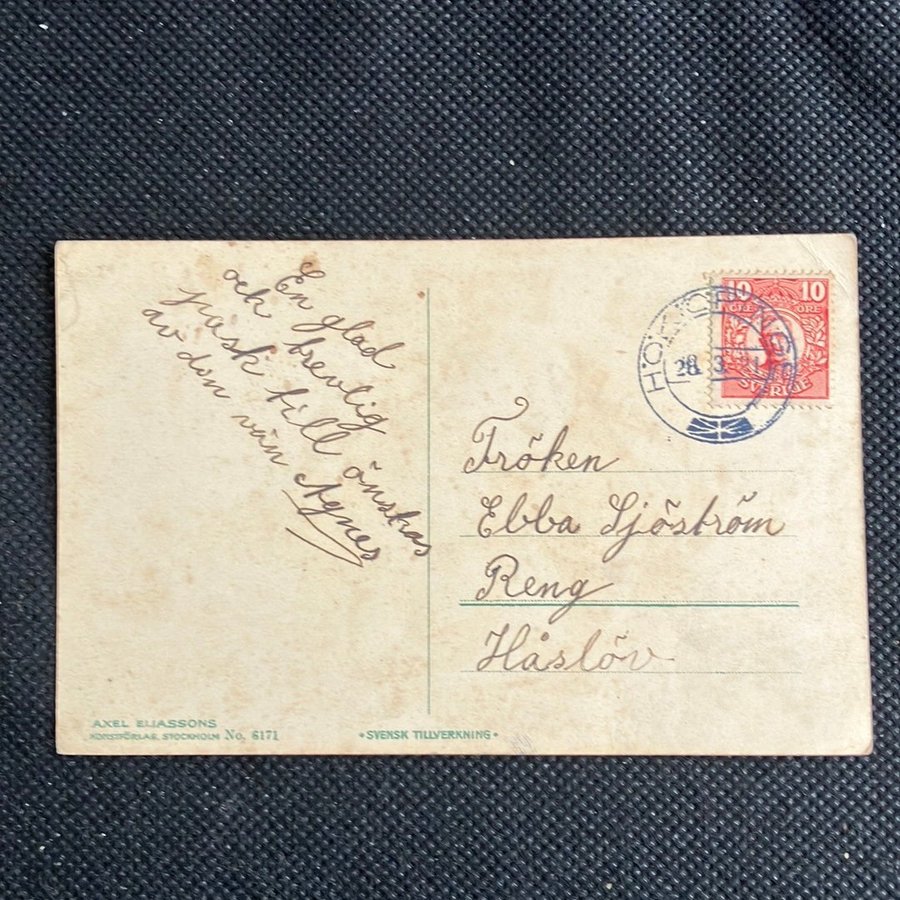 En glad
och trevlig
påsk till önskas
av din vän Agnes
10 10
ÖRE ÖRE
SVERIGE
28. 3. 21
Fröken
Ebba Sjöström
Reng
Håslöv
AXEL ELIASSONS
KONSTFÖRLAG, STOCKHOLM No. 6171
•SVENSK TILLVERKNING•